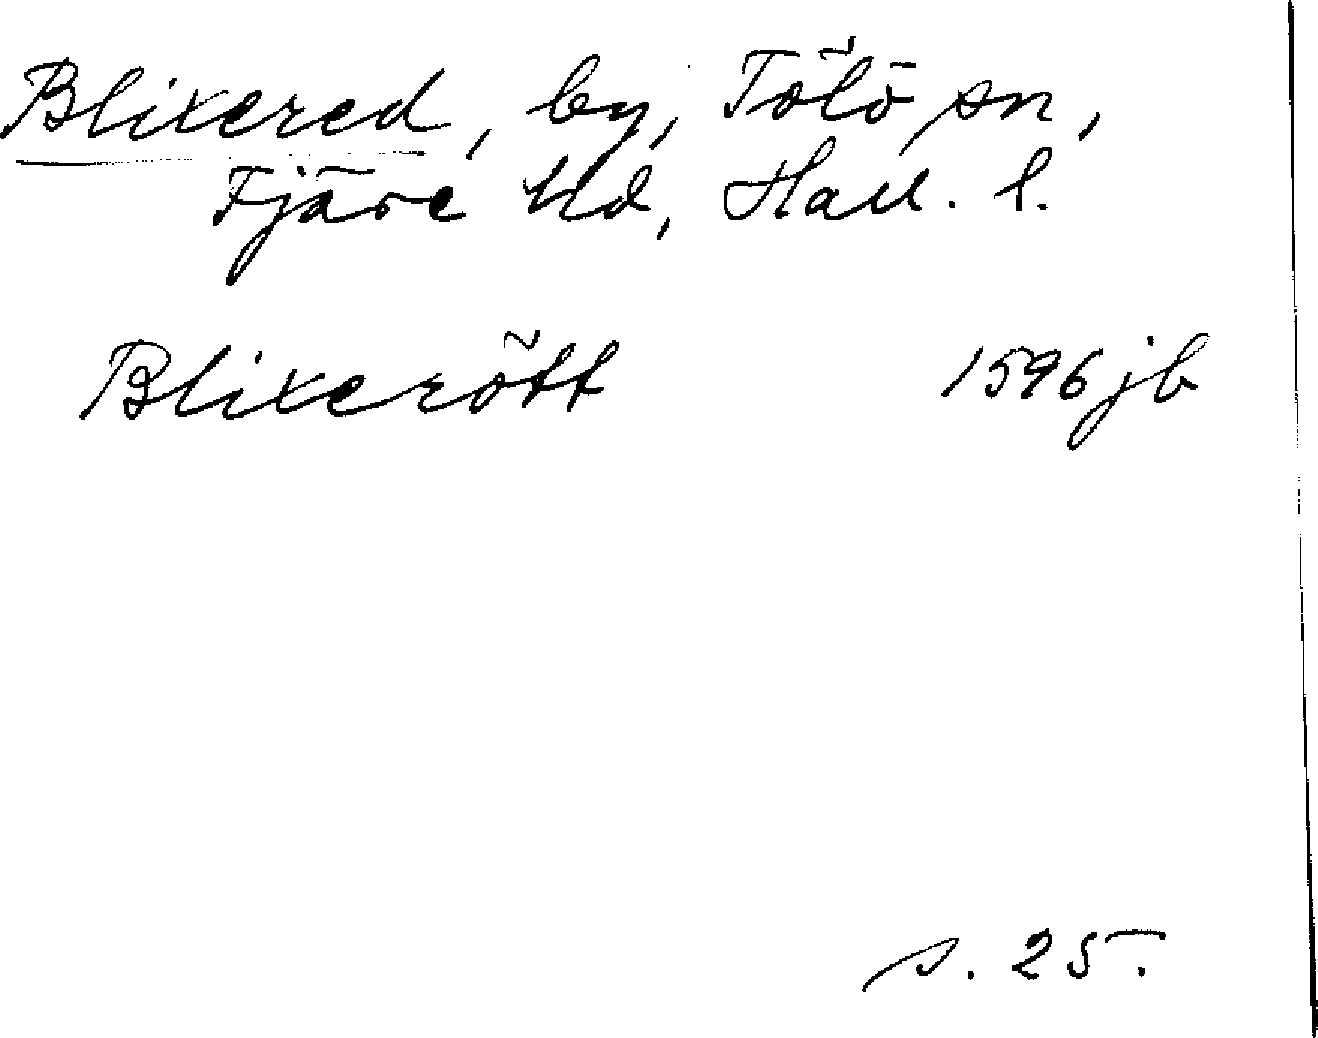 Blixered, by, Tölö sn,
Fjäre hd, Hall. l.
Blixerött 1596 jb
s. 25.